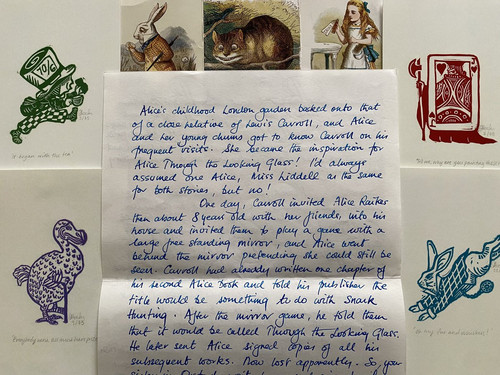 Alice's childhood London garden backed onto that
of a close relative of Lewis Carroll, and Alice
and her young chums got to know Carroll on his
frequent visits. She became the inspiration for
Alice Through the Looking Glass! I'd always
assumed one Alice, Miss Liddell as the same
for both stories, but no!
One day, Carroll invited Alice Raikes
then about 8 years old with her friends, into his
house and invited them to play a game with a
large free standing mirror, and Alice went
behind the mirror pretending she could still be
seen. Carroll had already written one chapter of
his second Alice book and told his publisher the
title would be something to do with Snark
Hunting. After the mirror game, he told them
that it would be called Through the Looking Glass.
He later sent Alice signed copies of all his
subsequent works. Now lost apparently. So, your
10/6
It began with the tea